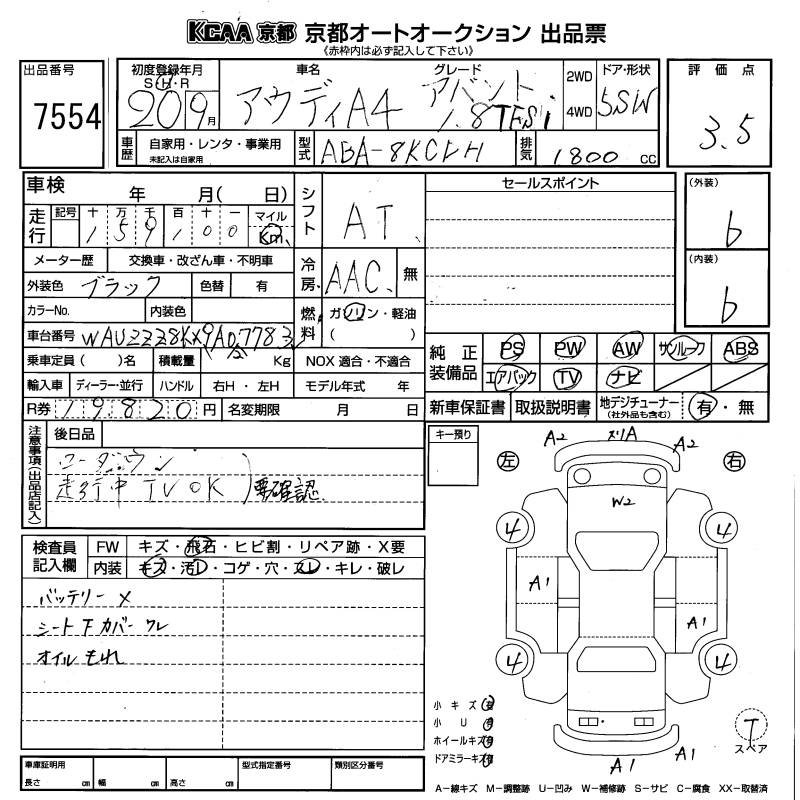 KCAA 京都 京都オートオークション 出品票
《赤枠内は必ず記入して下さい》
出品番号
7554
初度登録年月
S・H・R
20 9月
車名
アウディA4
グレード
アバント
1.8TFSI
2WD
4WD
ドア・形状
5SW
評価点
3.5
車歴
自家用・レンタ・事業用
未記入は自家用
型式
排気
1800 CC
車検
年 月( 日)
シフト
AT
セールスポイント
(外装)
b
(内装)
b
走行
記号 十 万 千 百 十 一 マイル
1 5 9 1 0 0 Km
メーター歴 交換車・改ざん車・不明車
冷房
AAC 無
外装色 ブラック 色替 有
カラーNo. 内装色
燃料
ガソリン・軽油
( )
車台番号
乗車定員( )名 積載量 Kg NOX 適合・不適合
輸入車 ディーラー・並行 ハンドル 右H・左H モデル年式 年
R券 19820円 名変期限 月 日
純正装備品
PS PW AW サンルーフ ABS
エアバック TV ナビ
新車保証書 取扱説明書 地デジチューナー (社外品も含む) 有・無
注意事項(出品店記入)
後日品
ローダウン
走行中 TV OK
要確認
キー預り
左
右
A2
ズリA
A2
W2
4
4
A1
A1
4
4
A1
A1
検査員記入欄
FW キズ・飛石・ヒビ割・リペア跡・X要
内装 キズ・汚レ・コゲ・穴・スレ・キレ・破レ
バッテリー ×
シート下カバー ワレ
オイルもれ
小キズ 有
小U 有
ホイールキズ 有
ドアミラーキズ 有
T
スペア
車庫証明用
長さ cm 幅 cm 高さ cm
型式指定番号
類別区分番号
A−線キズ M−調整跡 U−凹み W−補修跡 S−サビ C−腐食 XX−取替済